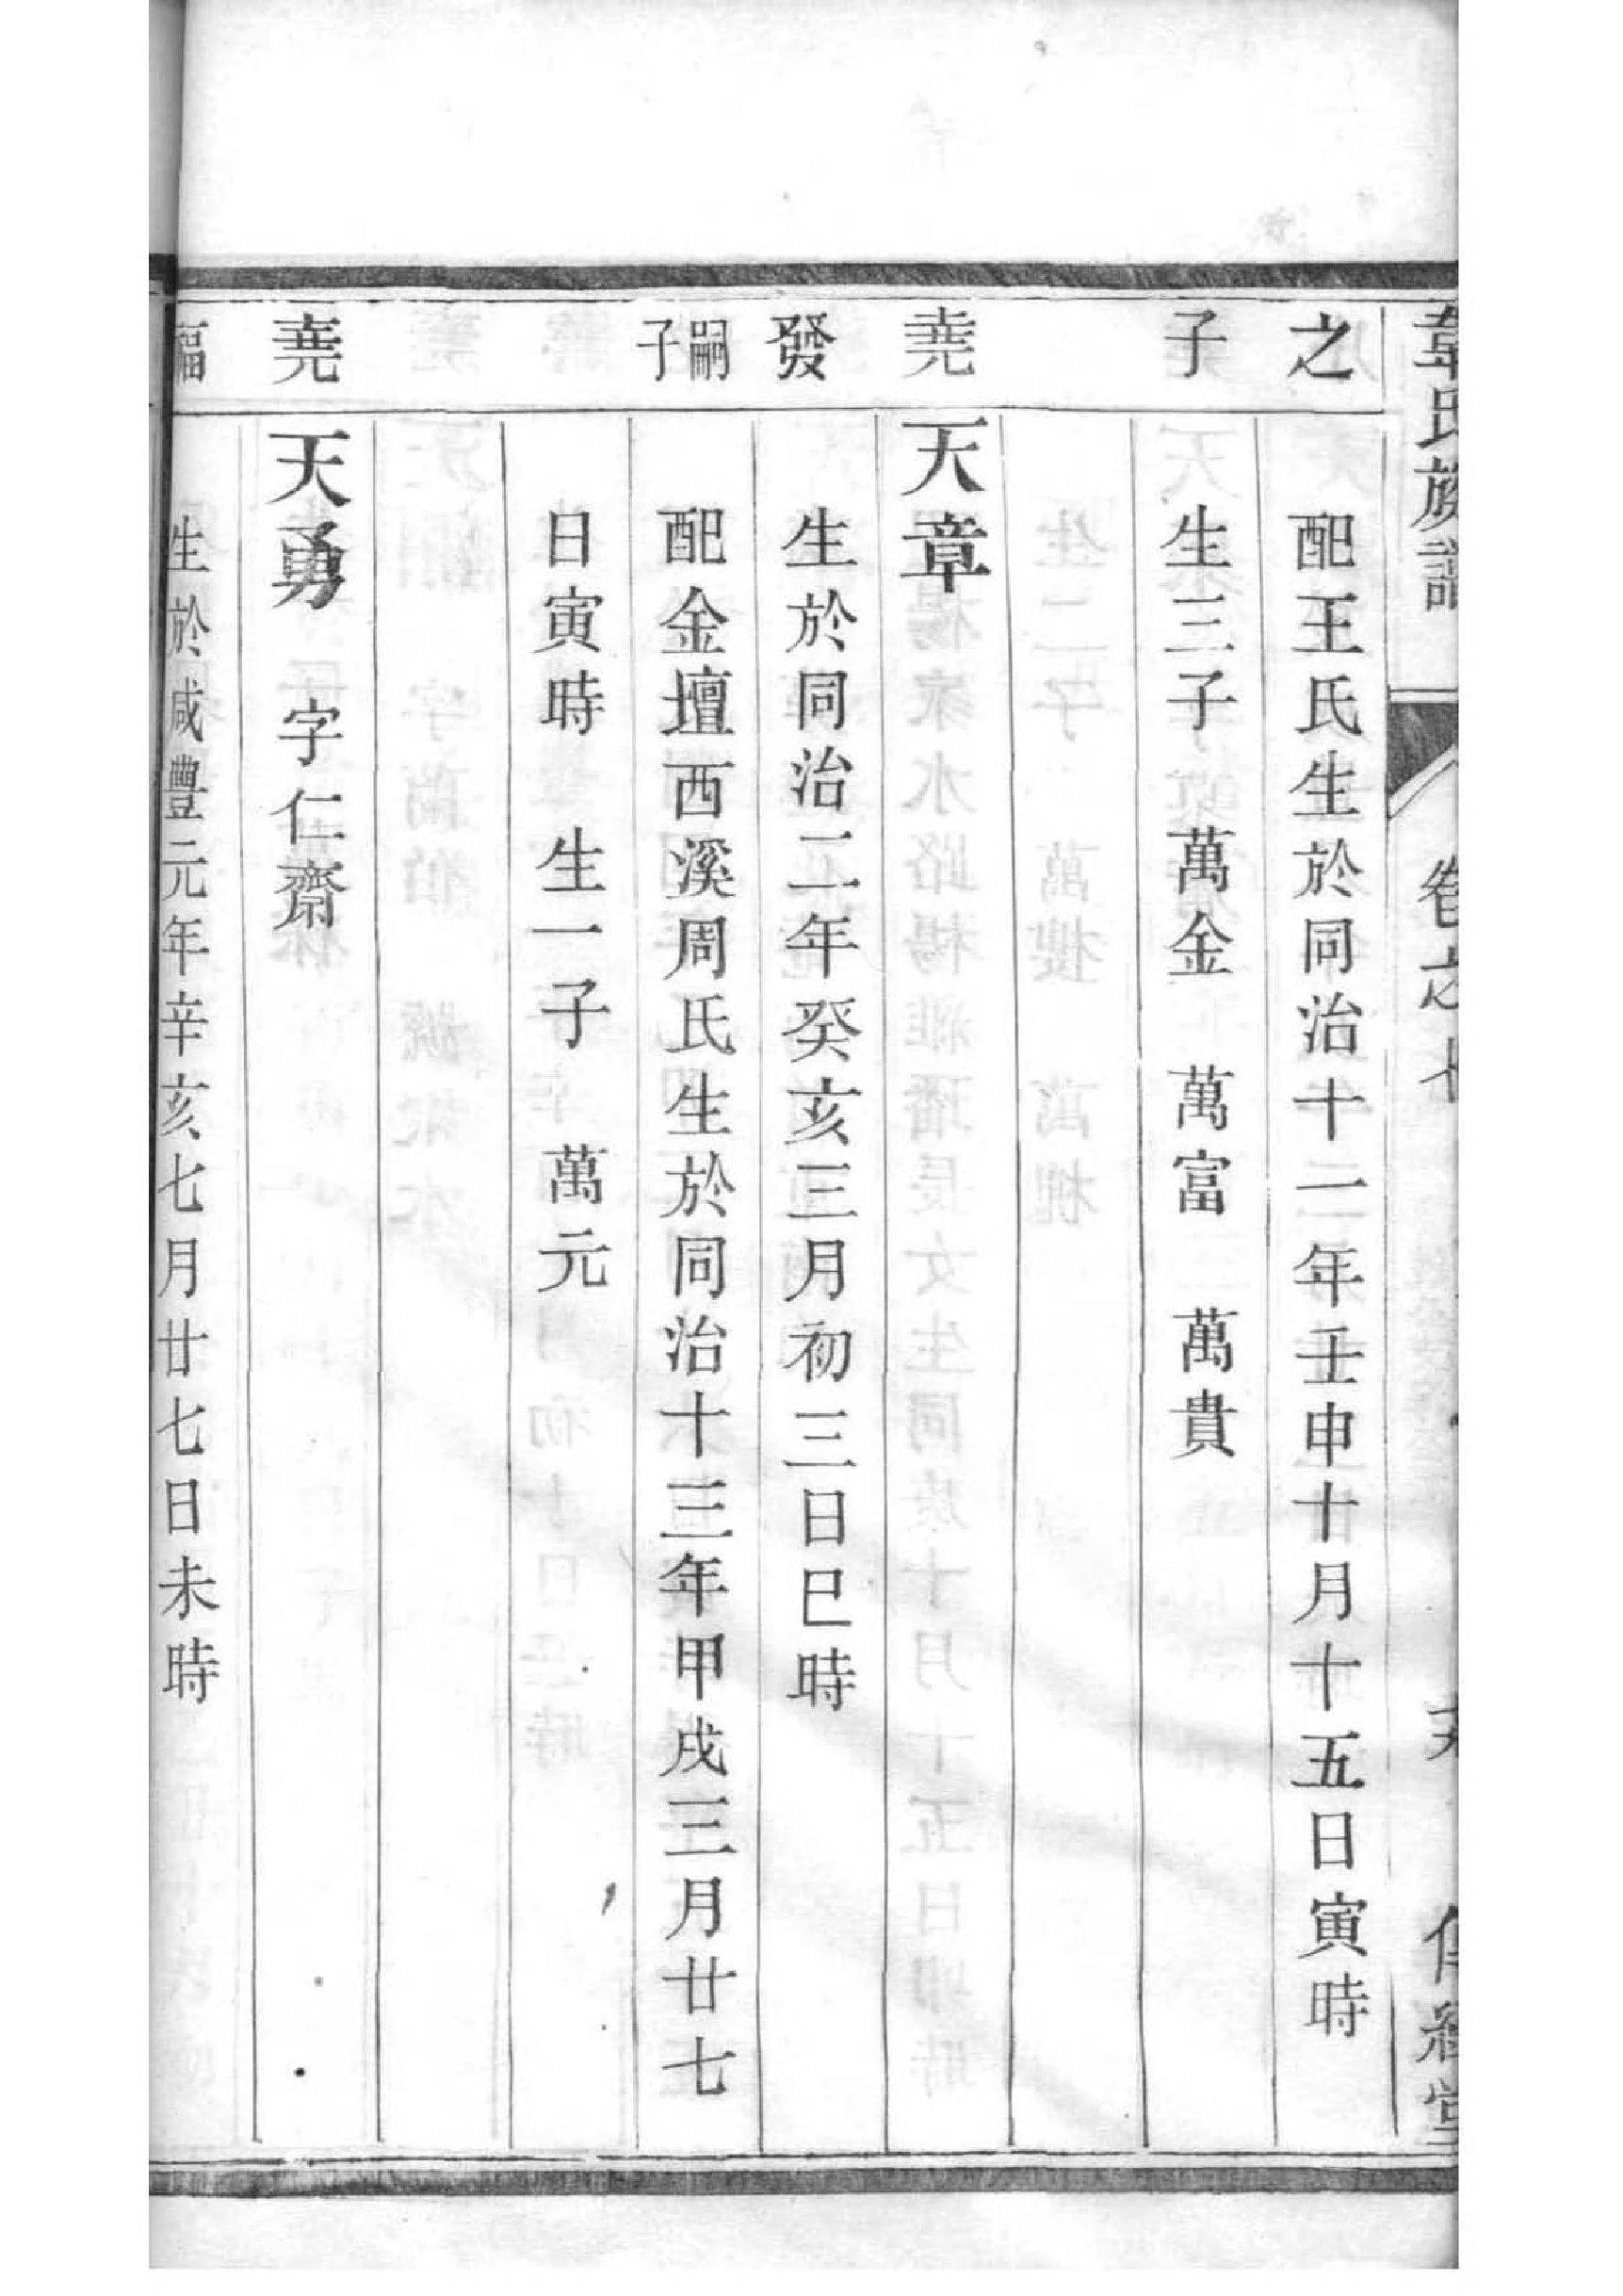 韋氏族譜 卷之七
之
配王氏生於同治十二年壬申十月十五日寅時
子
生三子 萬金 萬富 萬貴
堯
天章
發
生於同治二年癸亥三月初三日巳時
嗣子
配金壇西溪周氏生於同治十三年甲戌三月廿七
日寅時 生一子 萬元
堯
天勇 字仁齋
福
生於咸豐元年辛亥七月廿七日未時